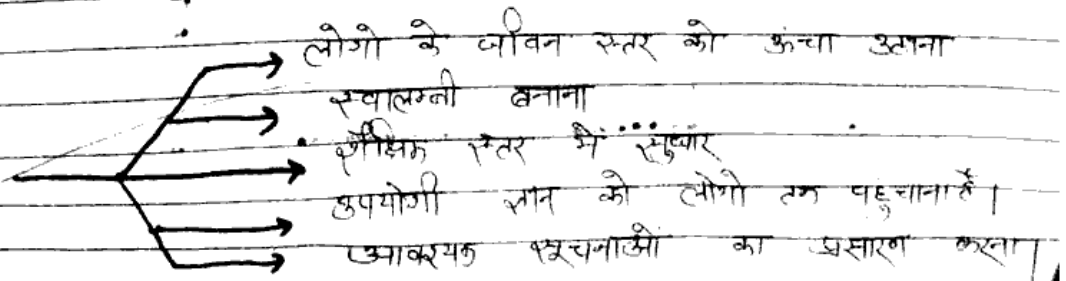 लोगो के जीवन स्तर को ऊंचा उठाना
स्वालम्बी बनाना
शैक्षिक स्तर में सुधार
उपयोगी ज्ञान को लोगो तक पहुचाना है।
आवश्यक सूचनाओं का प्रसारण करना।